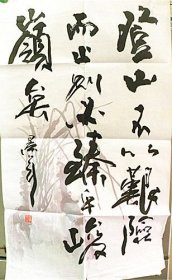 登山不以艱險
而止则必臻乎峻
嶺矣